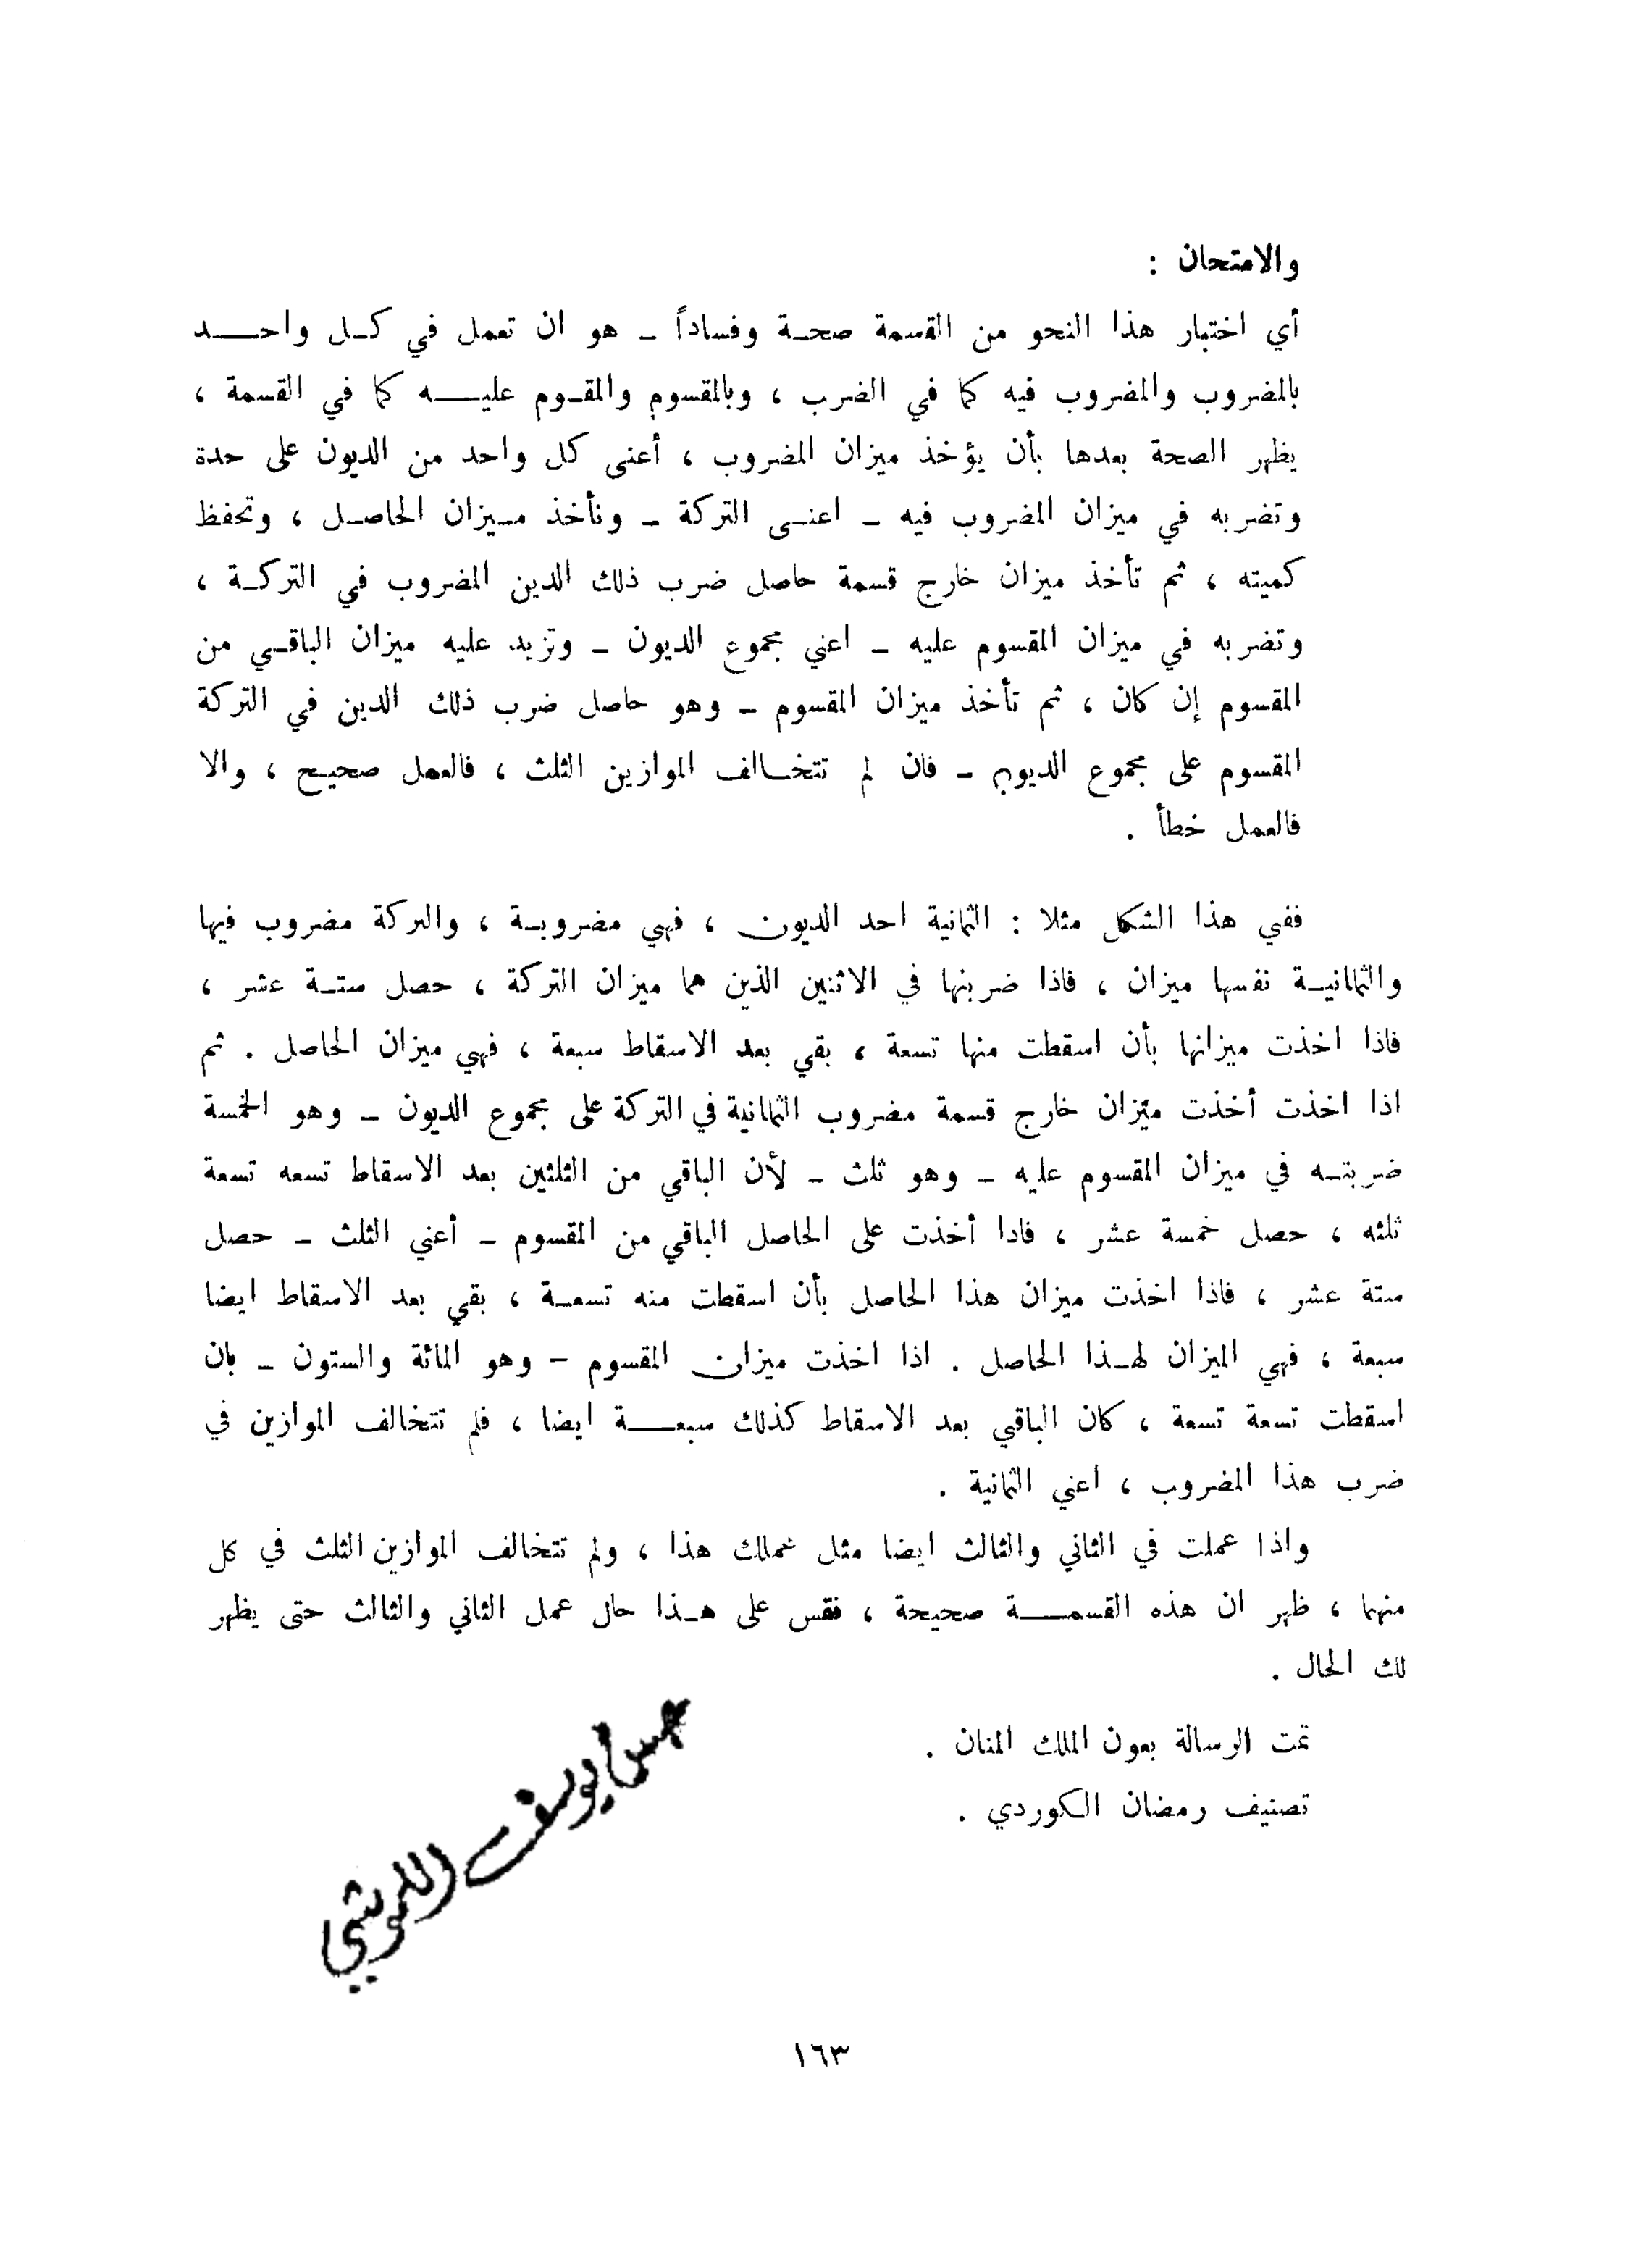 والامتحان :
أي اختبار هذا النحو من القسمة صحة وفساداً ـ هو ان تعمل في كل واحد
بالمضروب والمضروب فيه كما في الضرب ، وبالمقسوم والمقوم عليه كما في القسمة ،
يظهر الصحة بعدها بأن يؤخذ ميزان المضروب ، أعنى كل واحد من الديون على حدة
وتضربه في ميزان المضروب فيه ـ اعنى التركة ـ ونأخذ ميزان الحاصل ، وتحفظ
كميته ، ثم تأخذ ميزان خارج قسمة حاصل ضرب ذلك الدين المضروب في التركة ،
وتضربه في ميزان المقسوم عليه ـ اعني مجموع الديون ـ وتزيد عليه ميزان الباقي من
المقسوم إن كان ، ثم تأخذ ميزان المقسوم ـ وهو حاصل ضرب ذلك الدين في التركة
المقسوم على مجموع الديوم ـ فان لم تتخالف الموازين الثلث ، فالعمل صحيح ، والا
فالعمل خطأ .
ففي هذا الشكل مثلا : الثمانية احد الديون ، فهي مضروبة ، والتركة مضروب فيها
والثمانية نفسها ميزان ، فاذا ضربنها في الاثنين الذين هما ميزان التركة ، حصل ستة عشر ،
فاذا اخذت ميزانها بأن اسقطت منها تسعة ، بقي بعد الاسقاط سبعة ، فهي ميزان الحاصل . ثم
اذا اخذت أخذت ميزان خارج قسمة مضروب الثمانية في التركة على مجموع الديون ـ وهو الخمسة
ضربته في ميزان المقسوم عليه ـ وهو ثلث ـ لأن الباقي من الثلثين بعد الاسقاط تسعه تسعة
ثلثه ، حصل خمسة عشر ، فادا أخذت على الحاصل الباقي من المقسوم ـ أعني الثلث ـ حصل
ستة عشر ، فاذا اخذت ميزان هذا الحاصل بأن اسقطت منه تسعة ، بقي بعد الاسقاط ايضا
سبعة ، فهي الميزان لهذا الحاصل . اذا اخذت ميزان المقسوم – وهو المائة والستون ـ بان
اسقطت تسعة تسعة ، كان الباقي بعد الاسقاط كذلك سبعة ايضا ، فلم تتخالف الموازين في
ضرب هذا المضروب ، اعني الثمانية .
واذا عملت في الثاني والثالث ايضا مثل عملك هذا ، ولم تتخالف الموازين الثلث في كل
منهما ، ظهر ان هذه القسمة صحيحة ، فقس على هذا حال عمل الثاني والثالث حتى يظهر
لك الحال .
تمت الرسالة بعون الملك المنان .
تصنيف رمضان الكوردي .
١٦٣